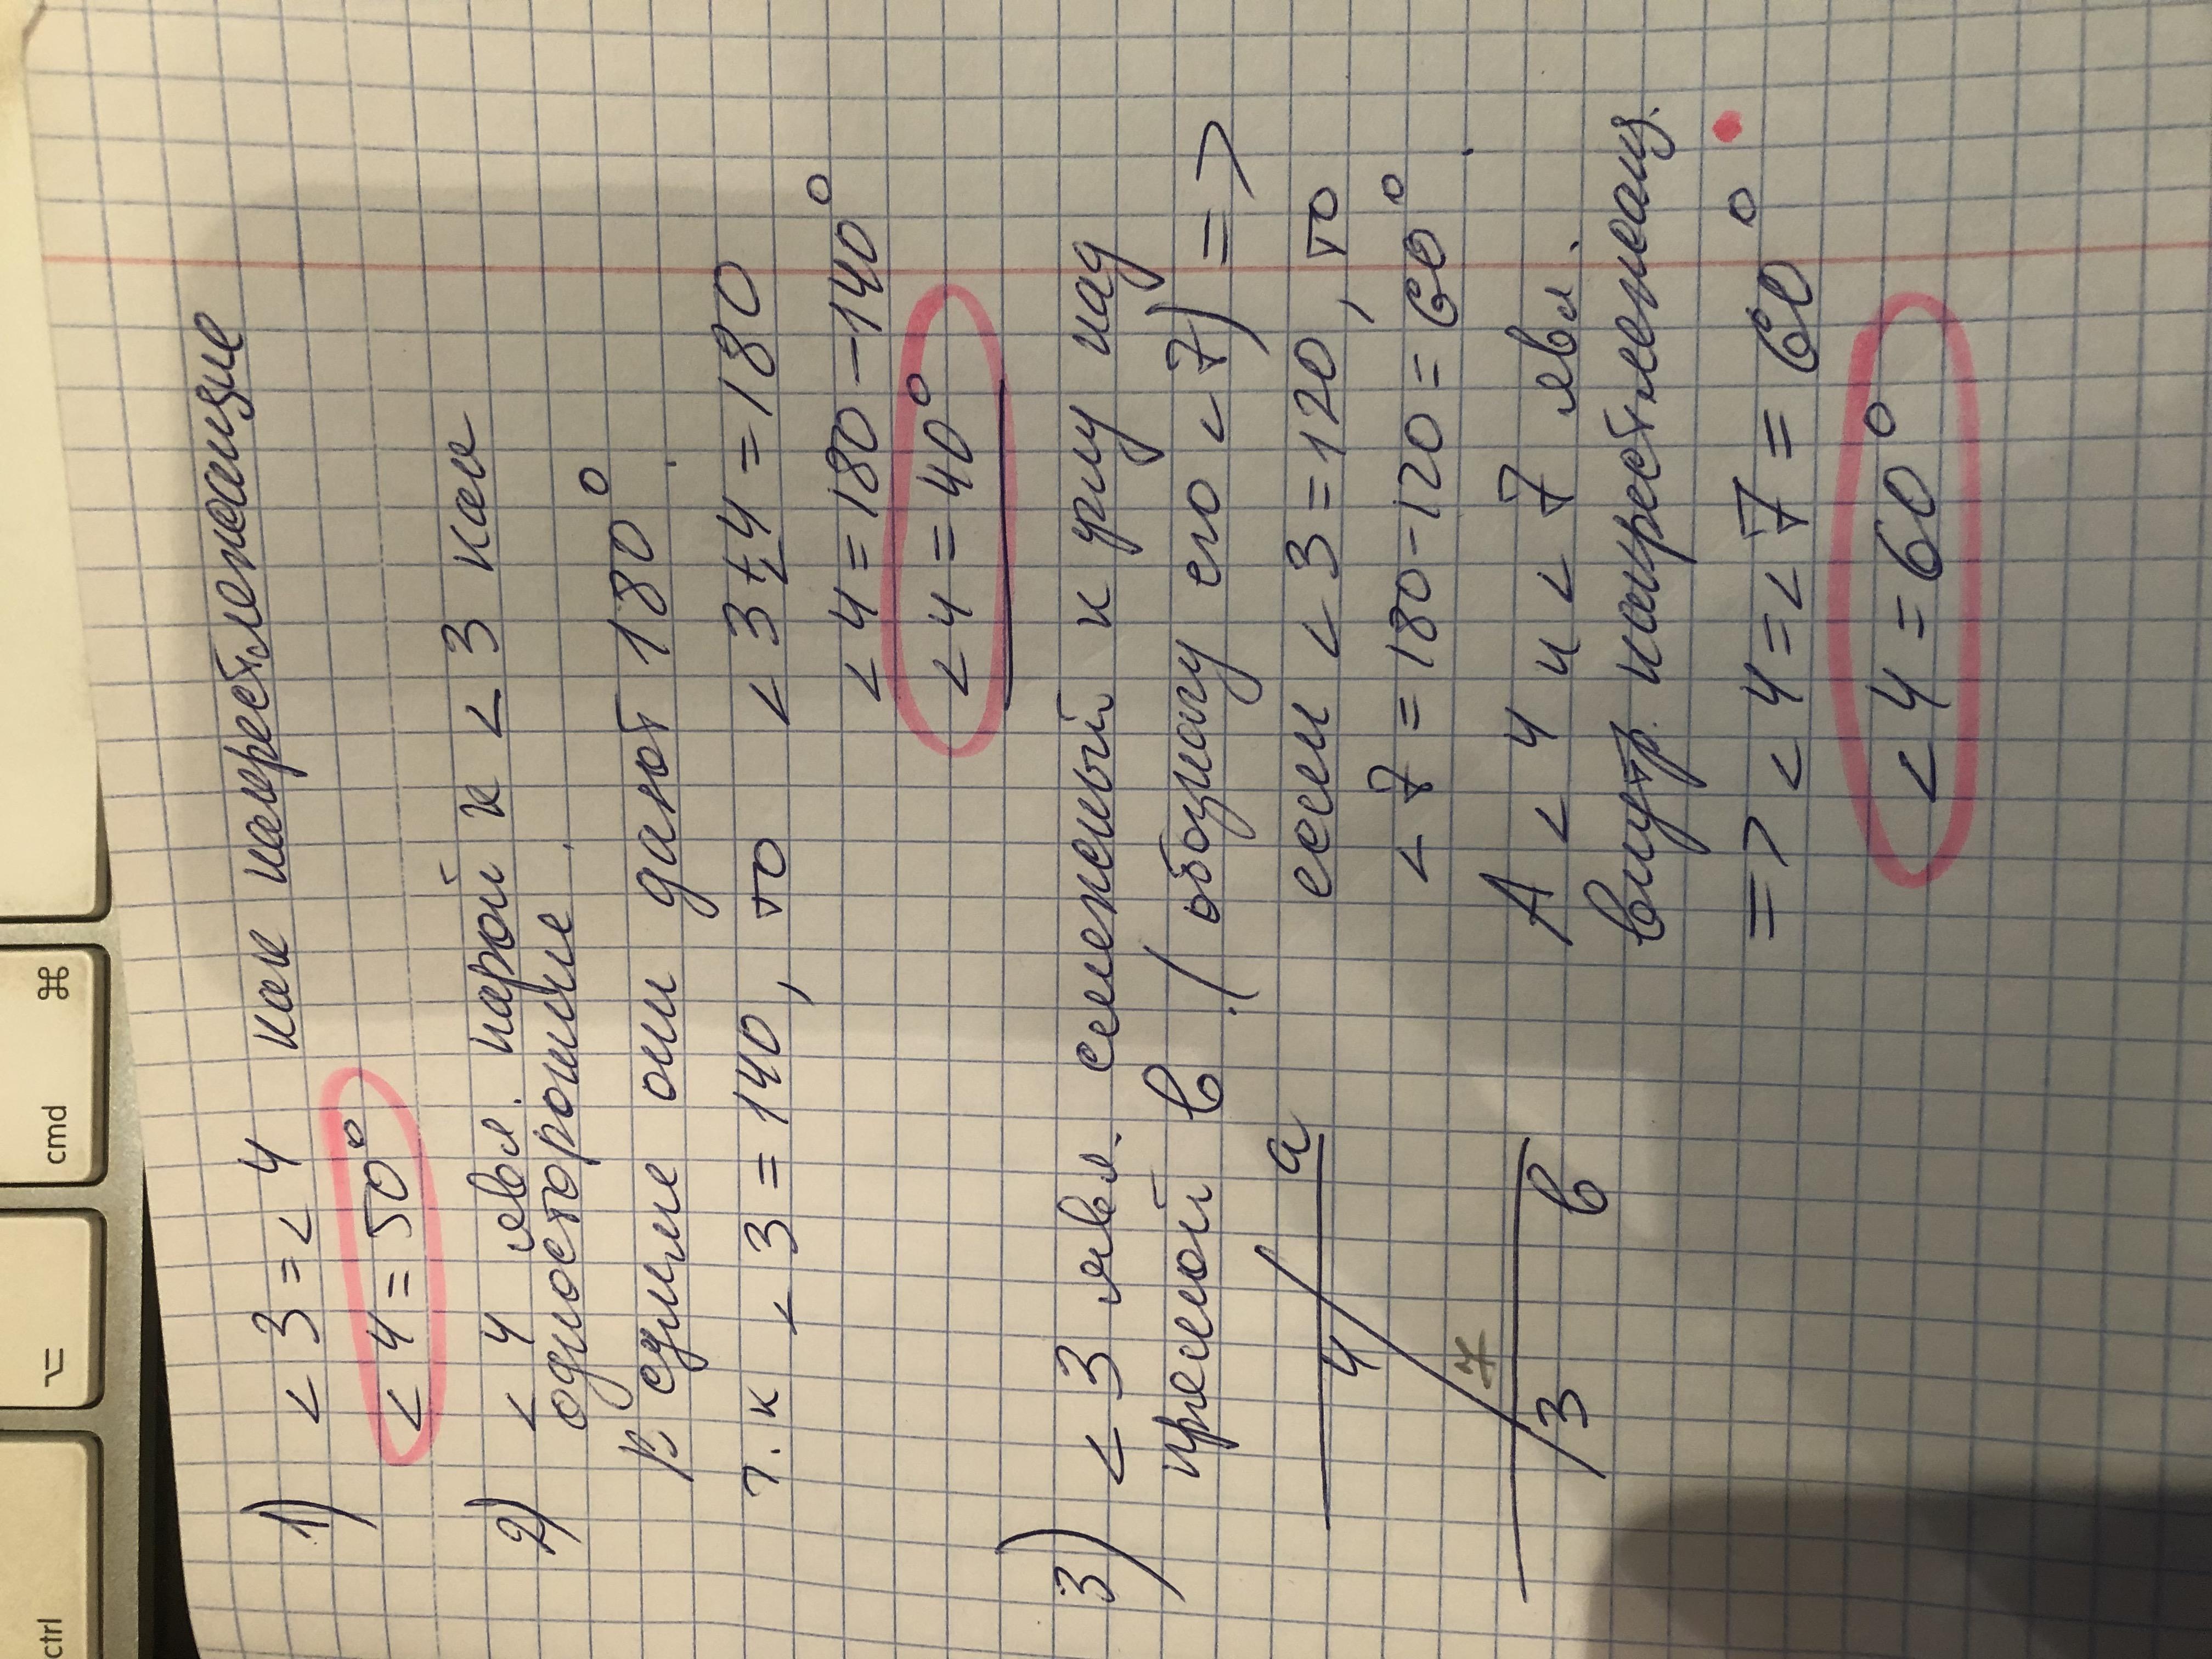 1) < 3 = < 4 как накрестлежащие
< 4 = 50°
2) < 4 явл. парой к < 3 как
односторонние.
В сумме они дают 180°.
т.к < 3 = 140, то < 3 + < 4 = 180
< 4 = 180 - 140°
< 4 = 40°
3) < 3 явл. смежный к углу над
прямой b. (обозначу его < 7) =>
если < 3 = 120, то
< 7 = 180-120 = 60°.
А < 4 и < 7 явл.
внутр. накрестлежащ.
=> < 4 = < 7 = 60°
< 4 = 60°
a
4
7
3
b
ctrl
⌥
cmd
⌘